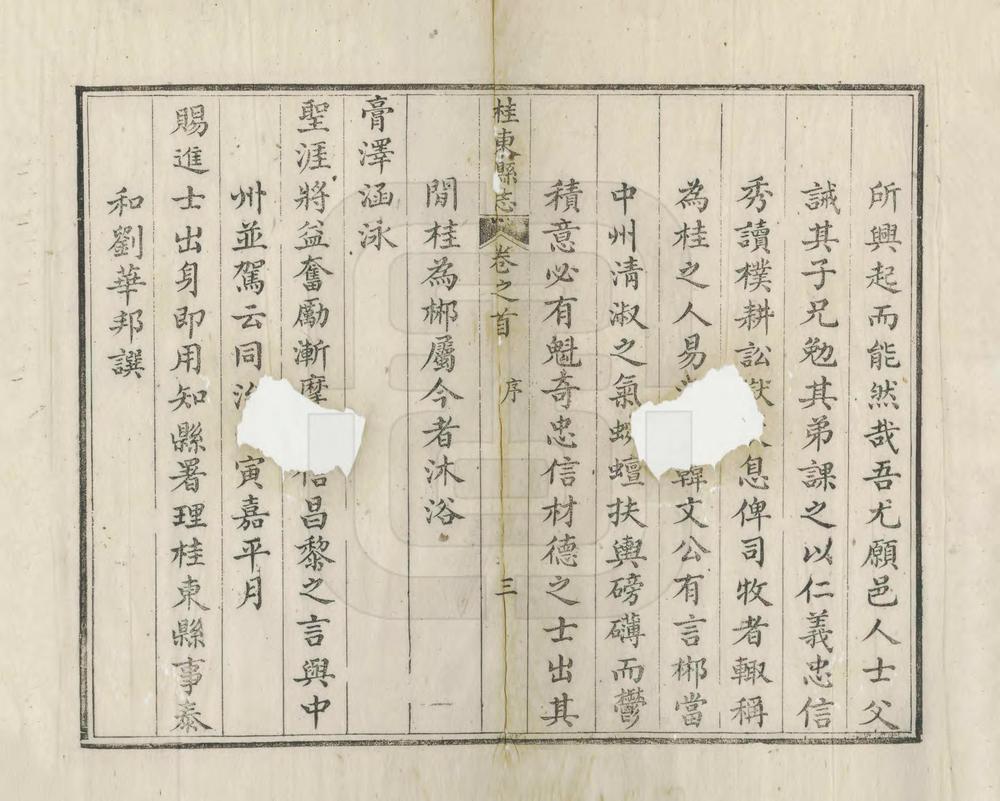 所興起而能然哉吾尤願邑人士父
誡其子兄勉其弟課之以仁義忠信
秀讀樸耕訟息俾司牧者輙稱
為桂之人易韓文公有言郴當
中州清淑之氣蜿蟺扶輿磅礴而鬱
積意必有魁奇忠信材德之士出其
桂東縣志 卷之首 序 三
間桂為郴屬今者沐浴
膏澤涵泳
聖涯將益奮勵漸摩信昌黎之言與中
州並駕云同治寅嘉平月
賜進士出身即用知縣署理桂東縣事泰
和劉華邦譔